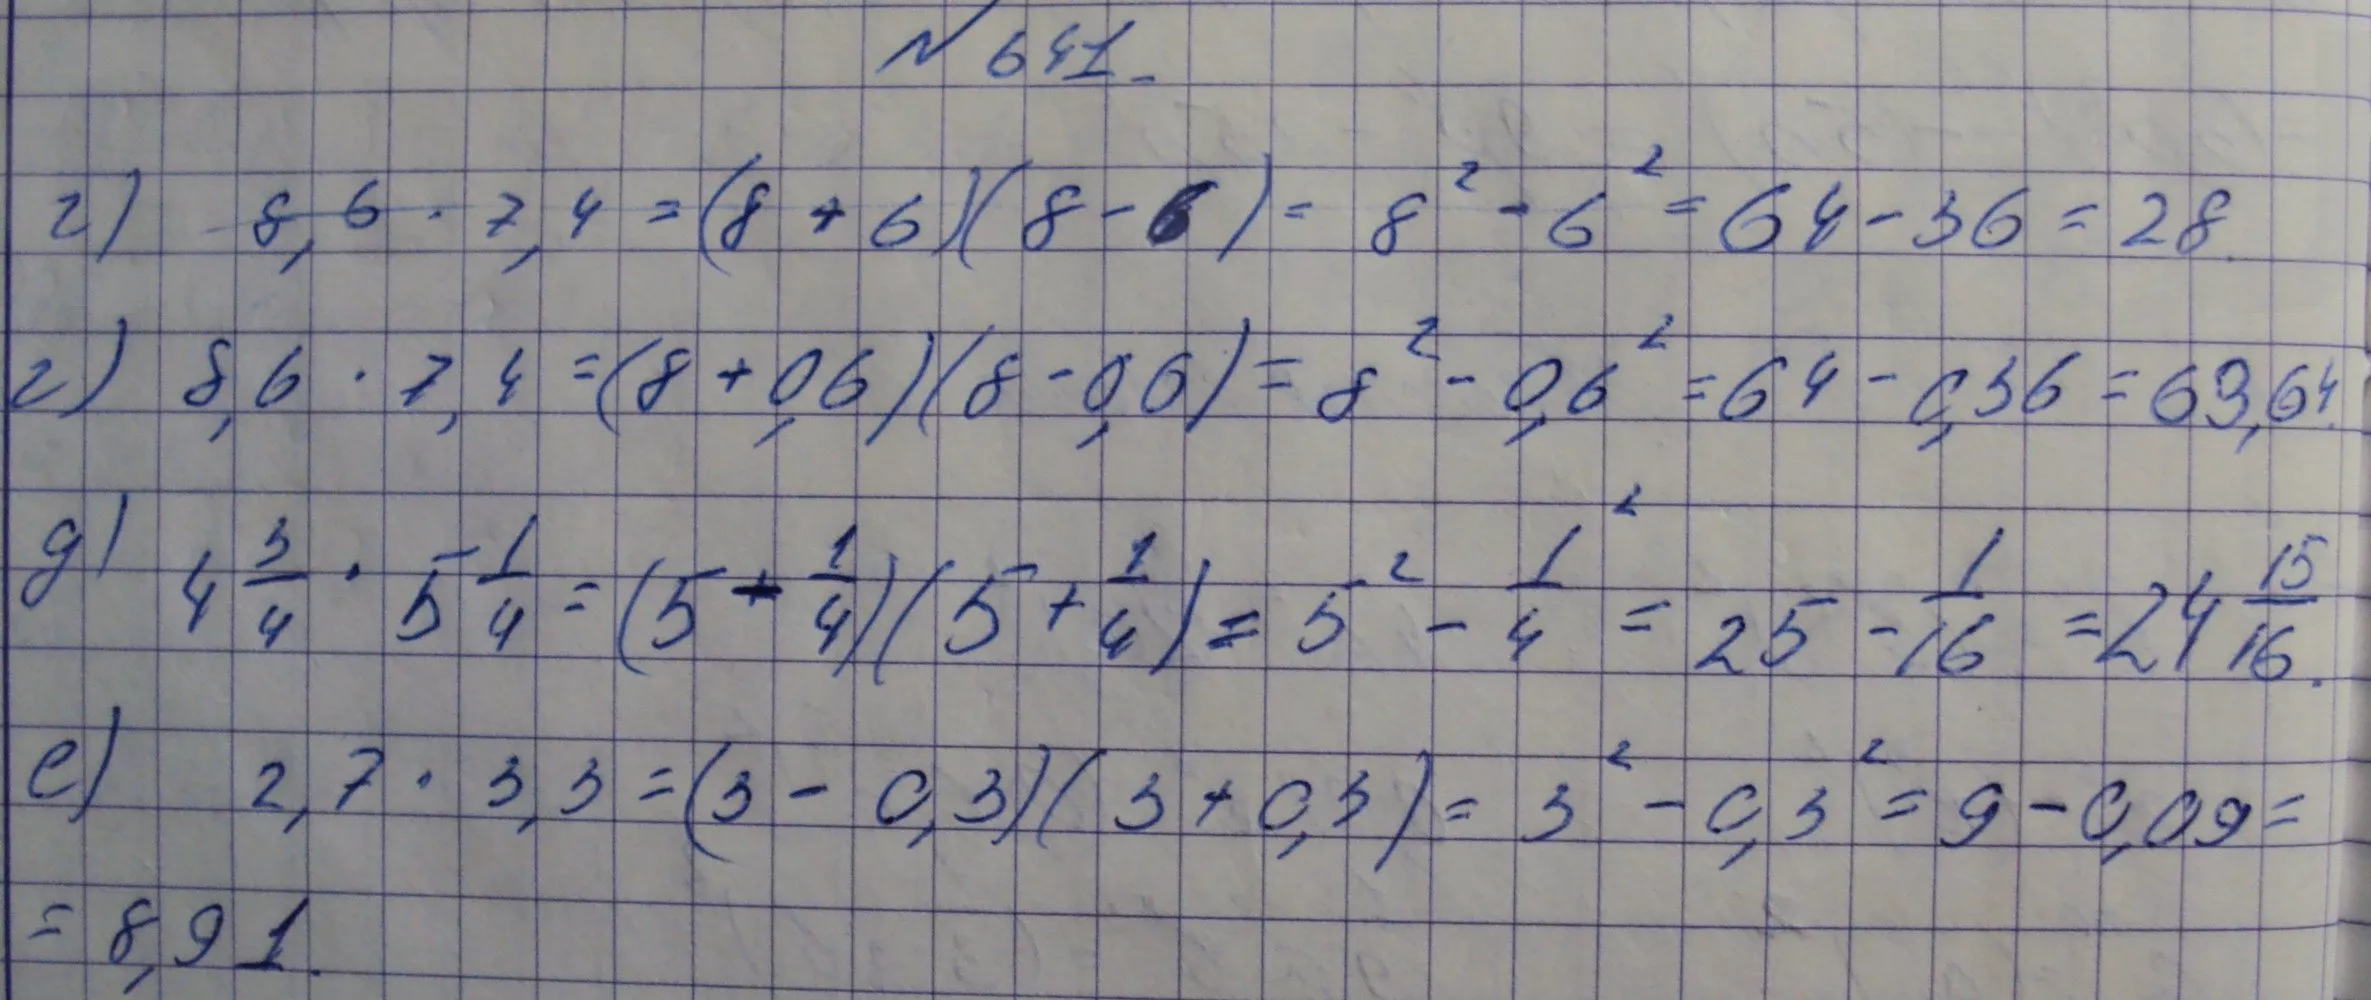 № 641.
г) 8,6 · 7,4 = (8 + 6)(8 - 6) = 8² - 6² = 64 - 36 = 28.
г) 8,6 · 7,4 = (8 + 0,6)(8 - 0,6) = 8² - 0,6² = 64 - 0,36 = 63,64.
д) 4 3/4 · 5 1/4 = (5 - 1/4)(5 + 1/4) = 5² - 1/4² = 25 - 1/16 = 24 15/16.
е) 2,7 · 3,3 = (3 - 0,3)(3 + 0,3) = 3² - 0,3² = 9 - 0,09 =
= 8,91.